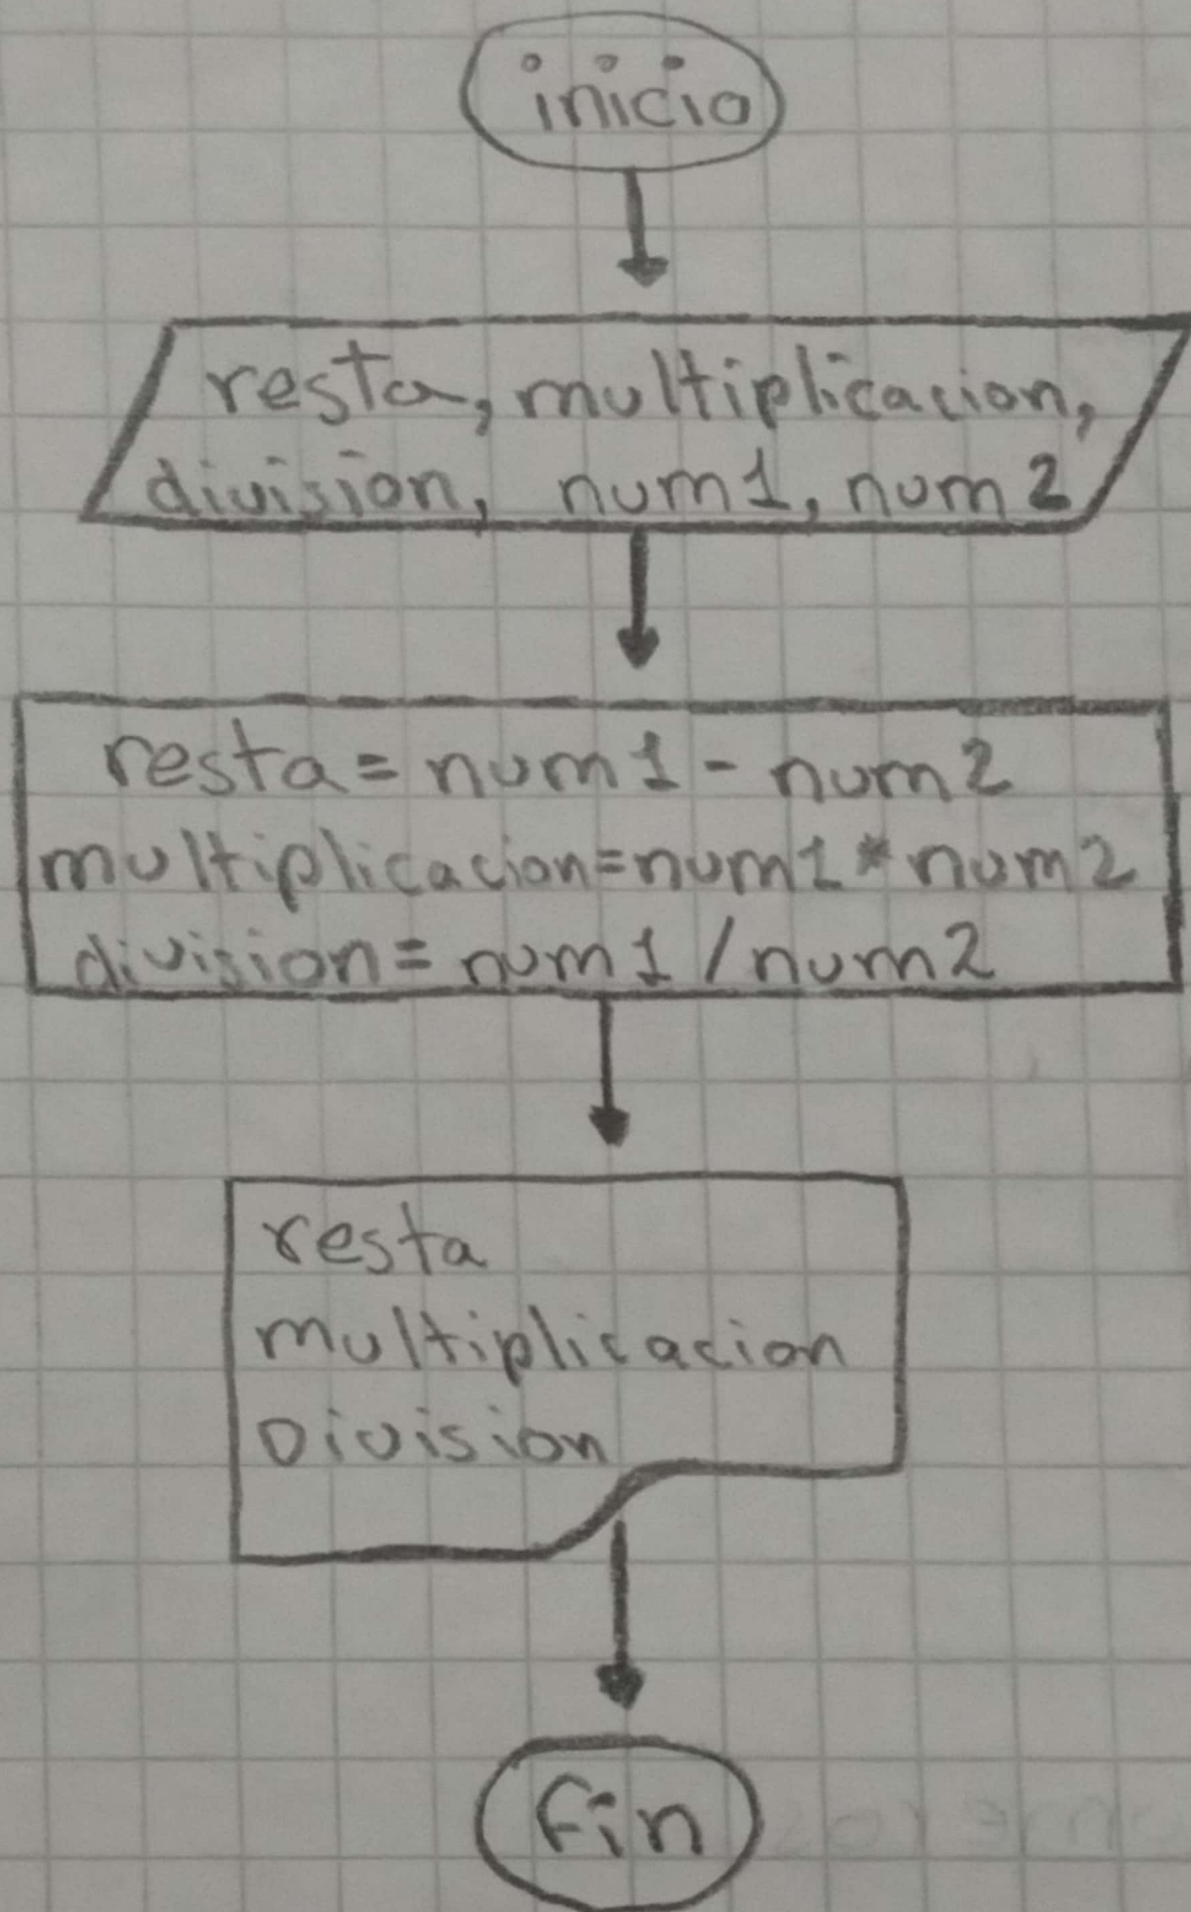 inicio
resta, multiplicacion,
division, num1, num2
resta = num1 - num2
multiplicacion=num1 * num2
division = num1 / num2
resta
multiplicacion
Division
Fin